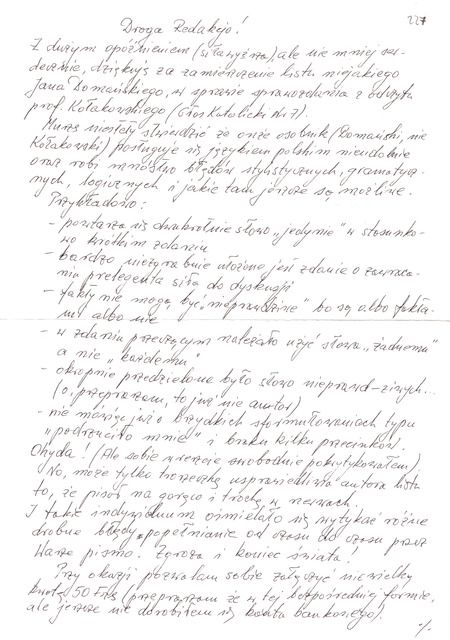 227
Droga Redakcjo!
Z dużym opóźnieniem (siła wyższa), ale nie mniej ser-
decznie, dziękuję za zamieszczenie listu niejakiego
Jana Domańskiego, w sprawie sprawozdania z odczytu
prof. Kołakowskiego (Głos Katolicki Nr 7).
Muszę niestety stwierdzić że onże osobnik (Domański, nie
Kołakowski) posługuje się językiem polskim nieudolnie
oraz robi mnóstwo błędów stylistycznych, gramatycz-
nych, logicznych i jakie tam jeszcze są możliwe.
Przykładowo:
- powtarza się dwukrotnie słowo „jedynie” w stosunko-
wo krótkim zdaniu
- bardzo niezgrabnie ułożone jest zdanie o zawraca-
niu prelegenta siłą do dyskusji
- fakty nie mogą być „nieprawdziwe” bo są albo fakta-
mi albo nie
- w zdaniu przeczącym należało użyć słowa „żadnemu”
a nie „każdemu”
- okropnie przedzielone było słowo nieprawd-ziwych...
(o, przepraszam, to już nie autor)
- nie mówiąc już o brzydkich sformułowaniach typu
„podrzuciło mnie” i braku kilku przecinków.
Ohyda! (Ale sobie wreszcie swobodnie pokrytykowałem).
No, może tylko troszeczkę usprawiedliwia autora listu
to, że pisał na gorąco i trochę w nerwach.
I takie indywiduum ośmielało się wytykać różne
drobne błędy popełniane od czasu do czasu przez
Wasze pismo. Zgroza i koniec świata!
Przy okazji pozwalam sobie załączyć niewielką
kwotę 50 Frs (przepraszam że w tej bezpośredniej formie,
ale jeszcze nie dorobiłem się konta bankowego).
./.